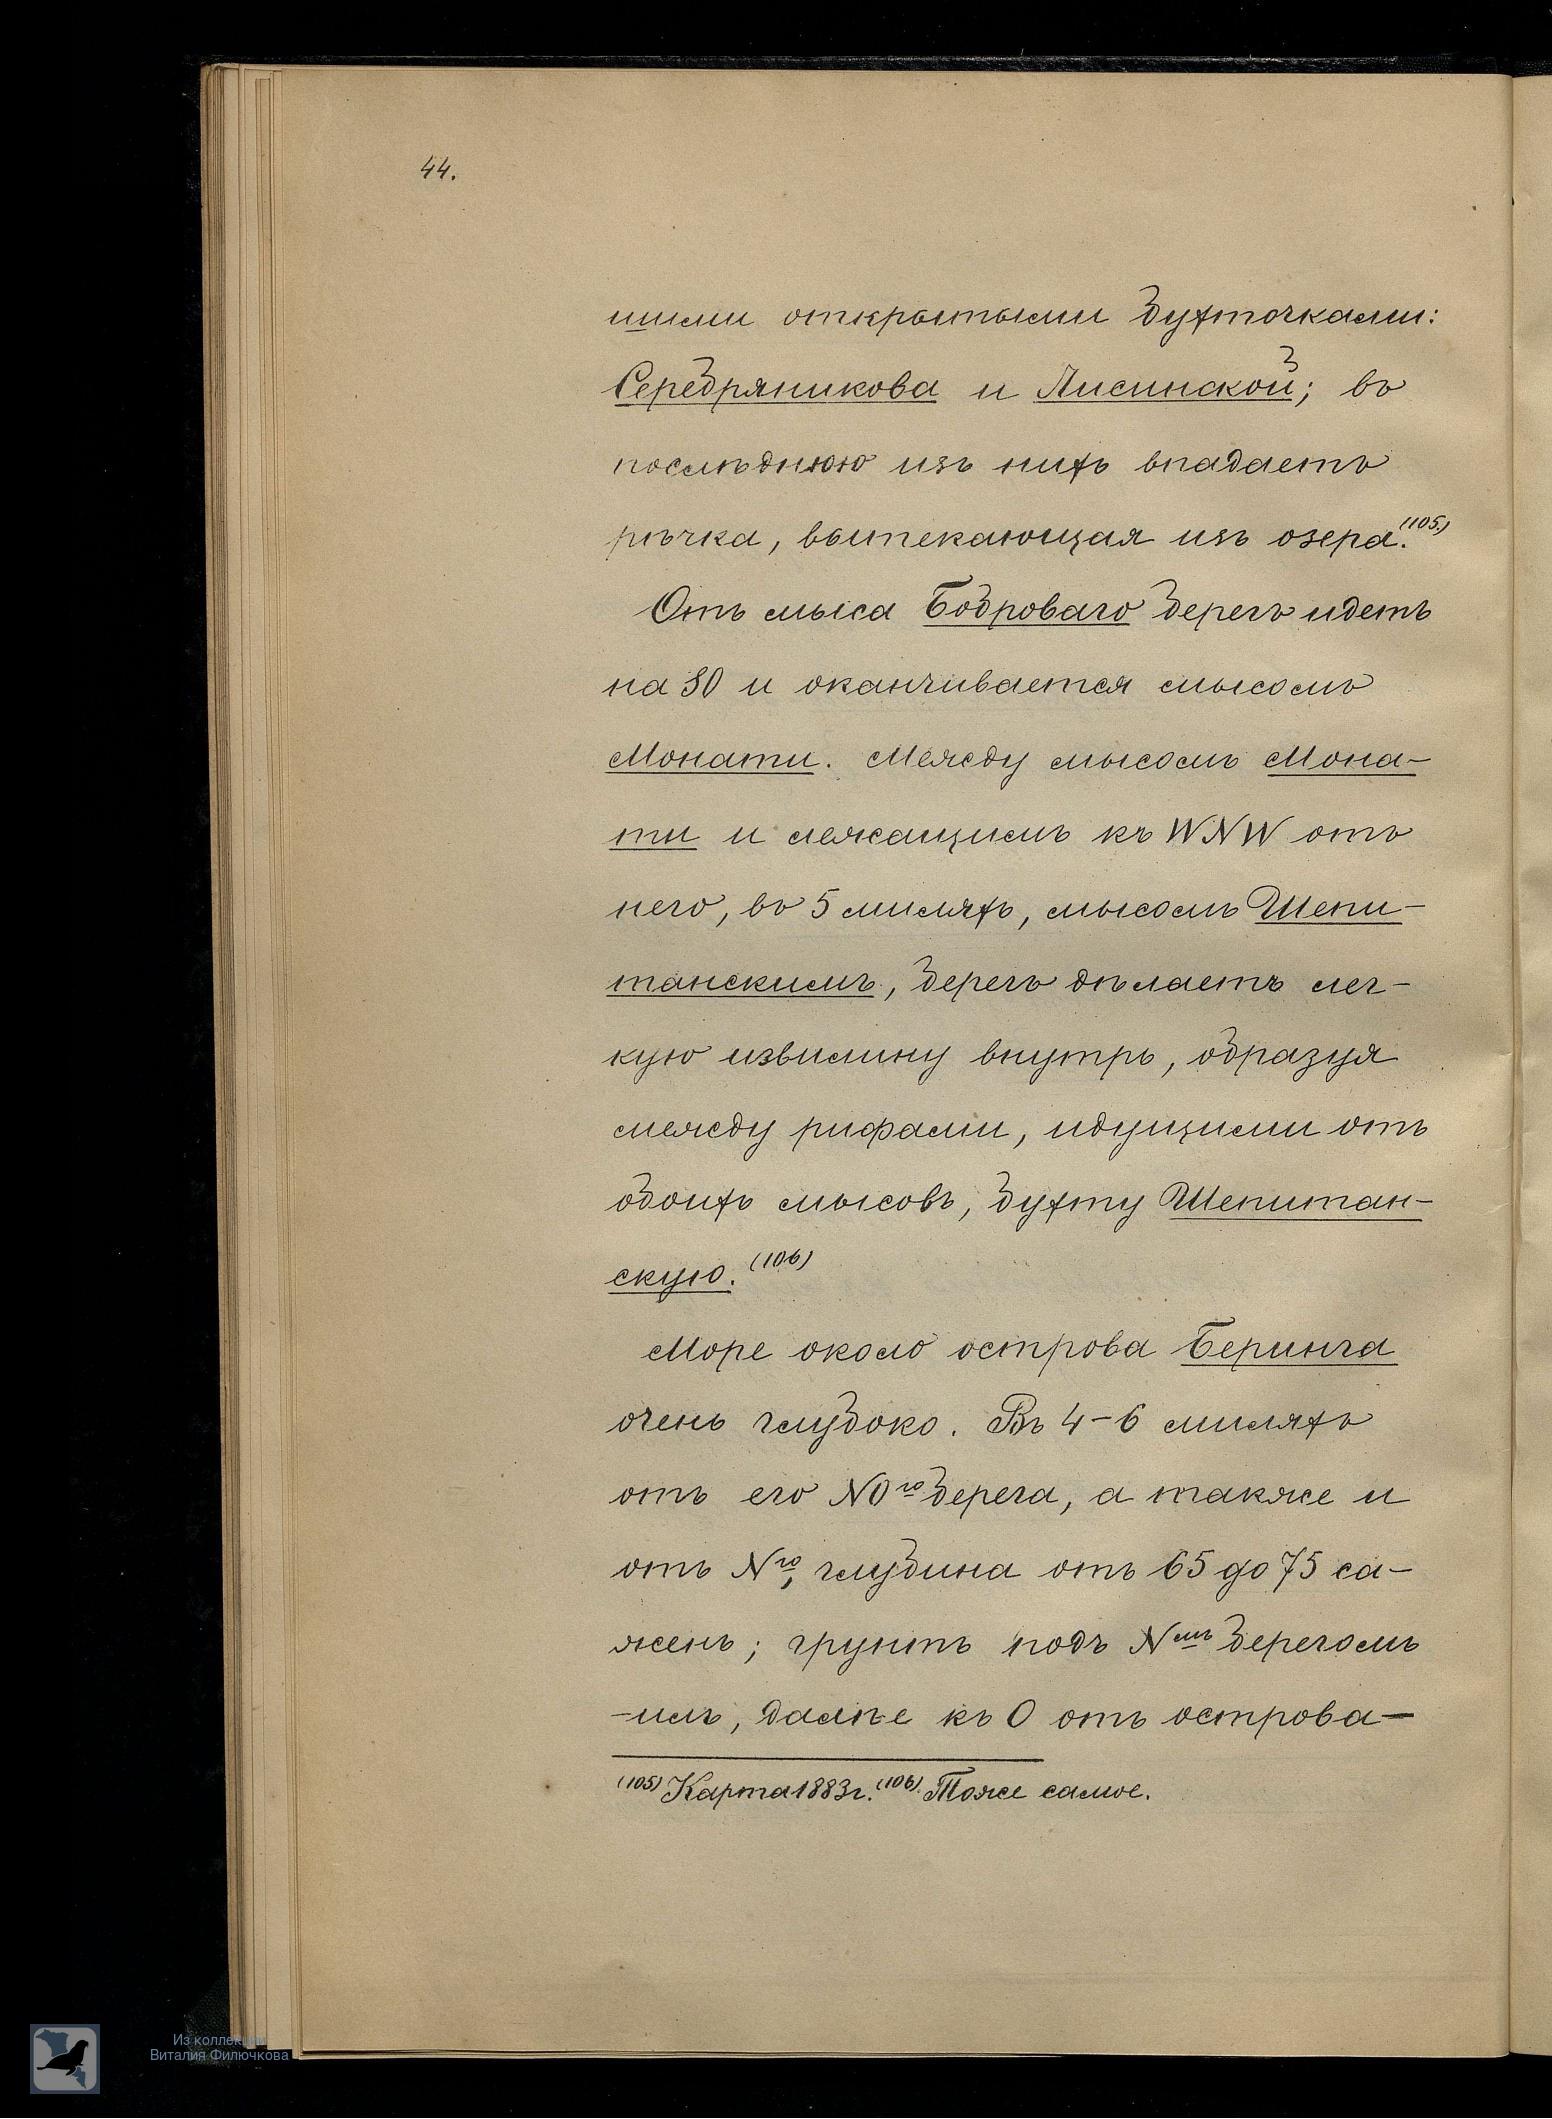 44.
шими открытыми бухточками:
Серебряникова и Лисинской; въ
послѣднюю изъ нихъ впадаетъ
рѣчка, вытекающая изъ озера.(105.)
Отъ мыса Боброваго берегъ идетъ
на SO и оканчивается мысомъ
Монати. Между мысомъ Мона-
ти и лежащимъ къ WNW отъ
него, въ 5 миляхъ, мысомъ Шепи-
танскимъ, берегъ дѣлаетъ лег-
кую извилину внутрь, образуя
между рифами, идущими отъ
обоихъ мысовъ, бухту Шепитан-
скую.(106)
Море около острова Беринга
очень глубоко. Въ 4-6 миляхъ
отъ его NOго берега, а также и
отъ Nго, глубина отъ 65 до 75 са-
жень; грунтъ подъ Nмъ берегомъ
-илъ, далѣе къ O отъ острова-
(105) Карта 1883г. (106). Тоже самое.
Из коллекции
Виталия Филючкова